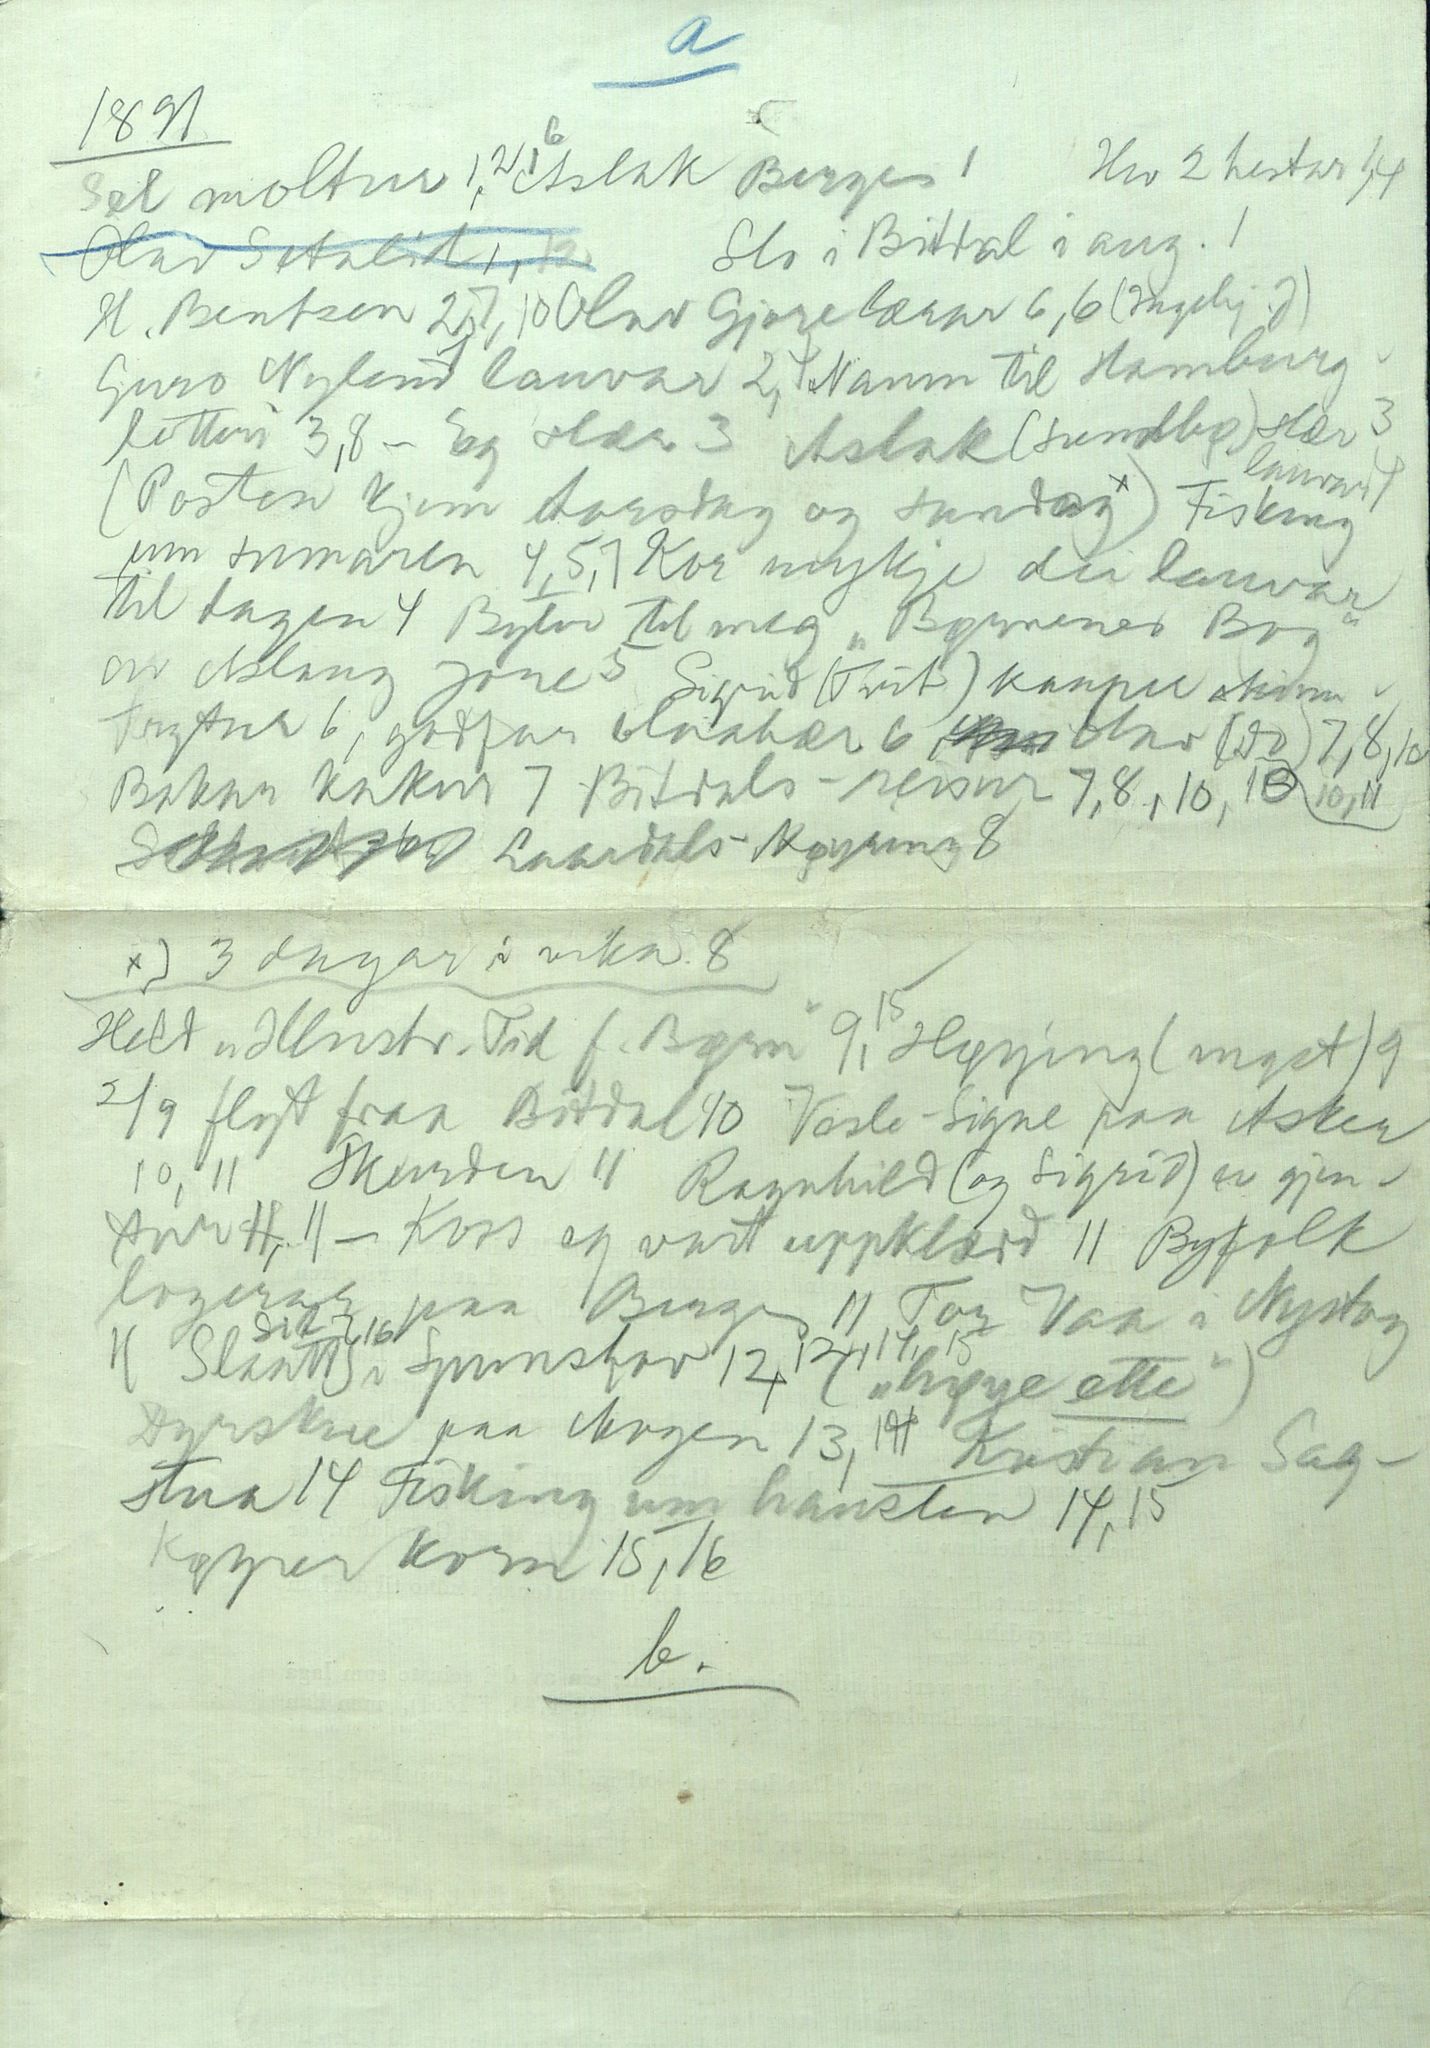 a
1891
Sel moltur 1, 2, 6 Aslak Berge 1 Hev 2 hestar 1, 4
Olav Setalid 1, Slo i Bitdal i aug. 1
H. Bentsen 2, 7, 10 Olav Gjøre lærar 6, 6 (Ingebj. J)
Guro Nylend lauvar 2, 4 Namn til Hamburg-
lotteri 3, 8 - Eg slær 3 Aslak (sundbø) slær 3
lauvar 4
(Posten kjem torsdag og sundag x) Fisking
um sumaren 4, 5, 7 Kor mykje dei lauvar
til dagen 4 Byter til meg „Børnenes Bog"
av Aslaug 5 Sigrid (Tveit) kauper
6, godfar 6 Olav (do) 7, 8, 10
Bakar kakur 7 Bitdals-reisur 7, 8, 10, 10, 11
Laardals-køyring 8
x) 3 dagar i vika. 8
Held „Illustr. Tid f. Børn" 9, 15 Høyjing (myst) 9
2/9 flyt fraa Bitdal 10 Vesle-Signe paa Asker
10, 11 Skurden 11 Ragnhild (og Sigrid) er gjen-
tur 11 - Koss eg vart uppklædd 11 Byfolk
logerar paa Berge 11 Tor Vaa i Nystog
11 Slaatt i 12, 12, 14, 15 („høye ette")
Dyrskue paa Mogen 13, 14 Kristian Sag-
stua 14 Fisking um hausten 14, 15
Køyrer korn 15, 16
b.